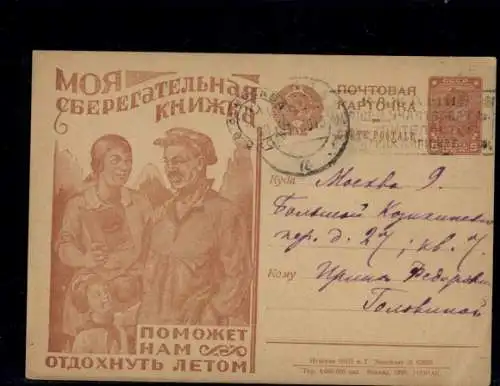 МОЯ
СБЕРЕГАТЕЛЬНАЯ
КНИЖКА
ПОМОЖЕТ
НАМ
ОТДОХНУТЬ ЛЕТОМ
ПОЧТОВАЯ
КАРТОЧКА
CARTE POSTALE
СССР
Куда
Москва 9.
Большой Козихинский
пер. д. 27; кв. 7.
Кому
Ирине Федоровне
Головиной